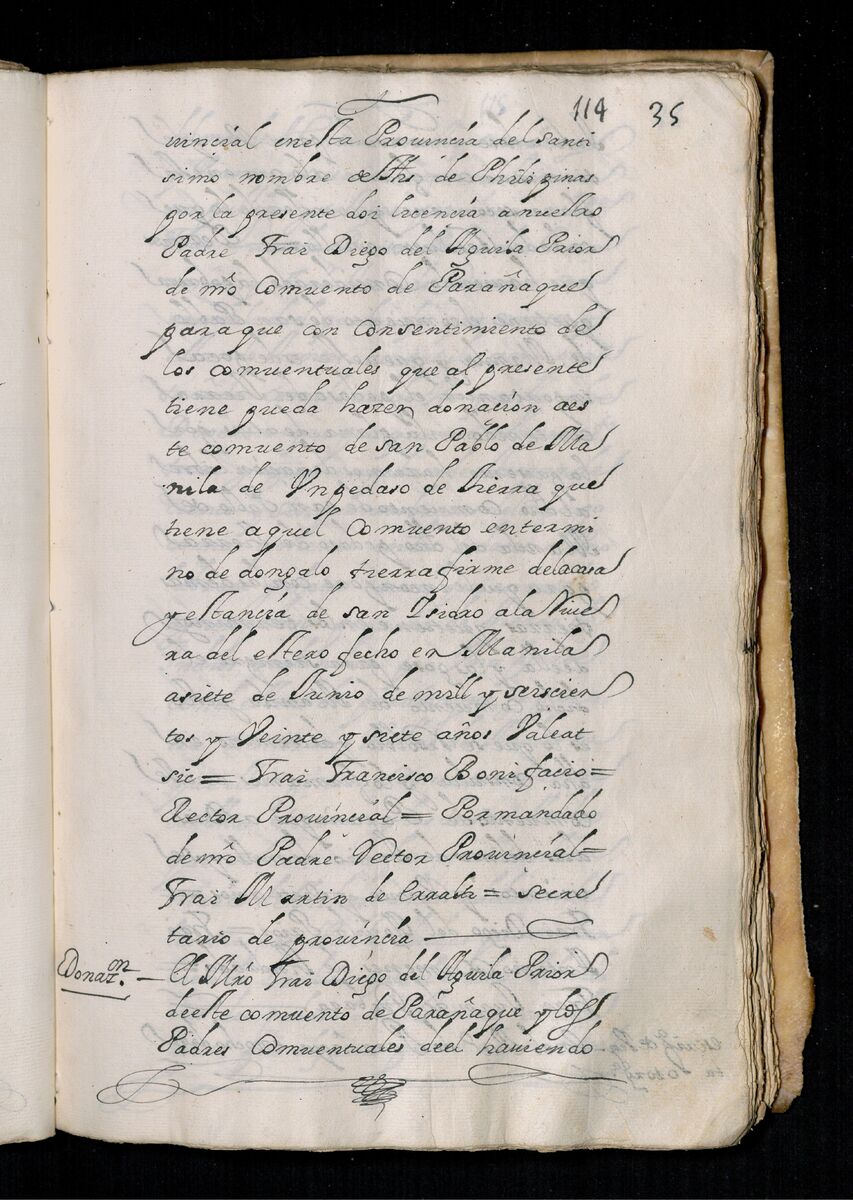 114 35
uincial enesta Prouincia del santi
simo nombre de Jhs de Philipinas
por la presente doi licencia a nuestro
Padre Frai Diego del Aguila Prior
de nrō Comuento de Parañaque
para que con Consentimiento de
los comuentuales que al presente
tiene pueda hazer donacion aes
te comuento de san Pablo de Ma
nila de Vn pedaso de tierra que
tiene aquel Comuento entermi
no de dongalo tierra firme dela casa
y estançia de san Isidro ala Rive
ra del estero fecho en Manila
asiete de Junio de mill y seiscien
tos y Veinte y siete años Valeat
sic = Frai Francisco Bonifacio =
Rector Prouincial = Pormandado
de nrō Padre Rector Prouincial =
Frai Martin de Errasti = secre
tario de prouincia
Donaz.on — El Mrō Frai Diego del Aguila Prior
deeste comuento de Parañaque y los
Padres Comuentuales deel hauiendo